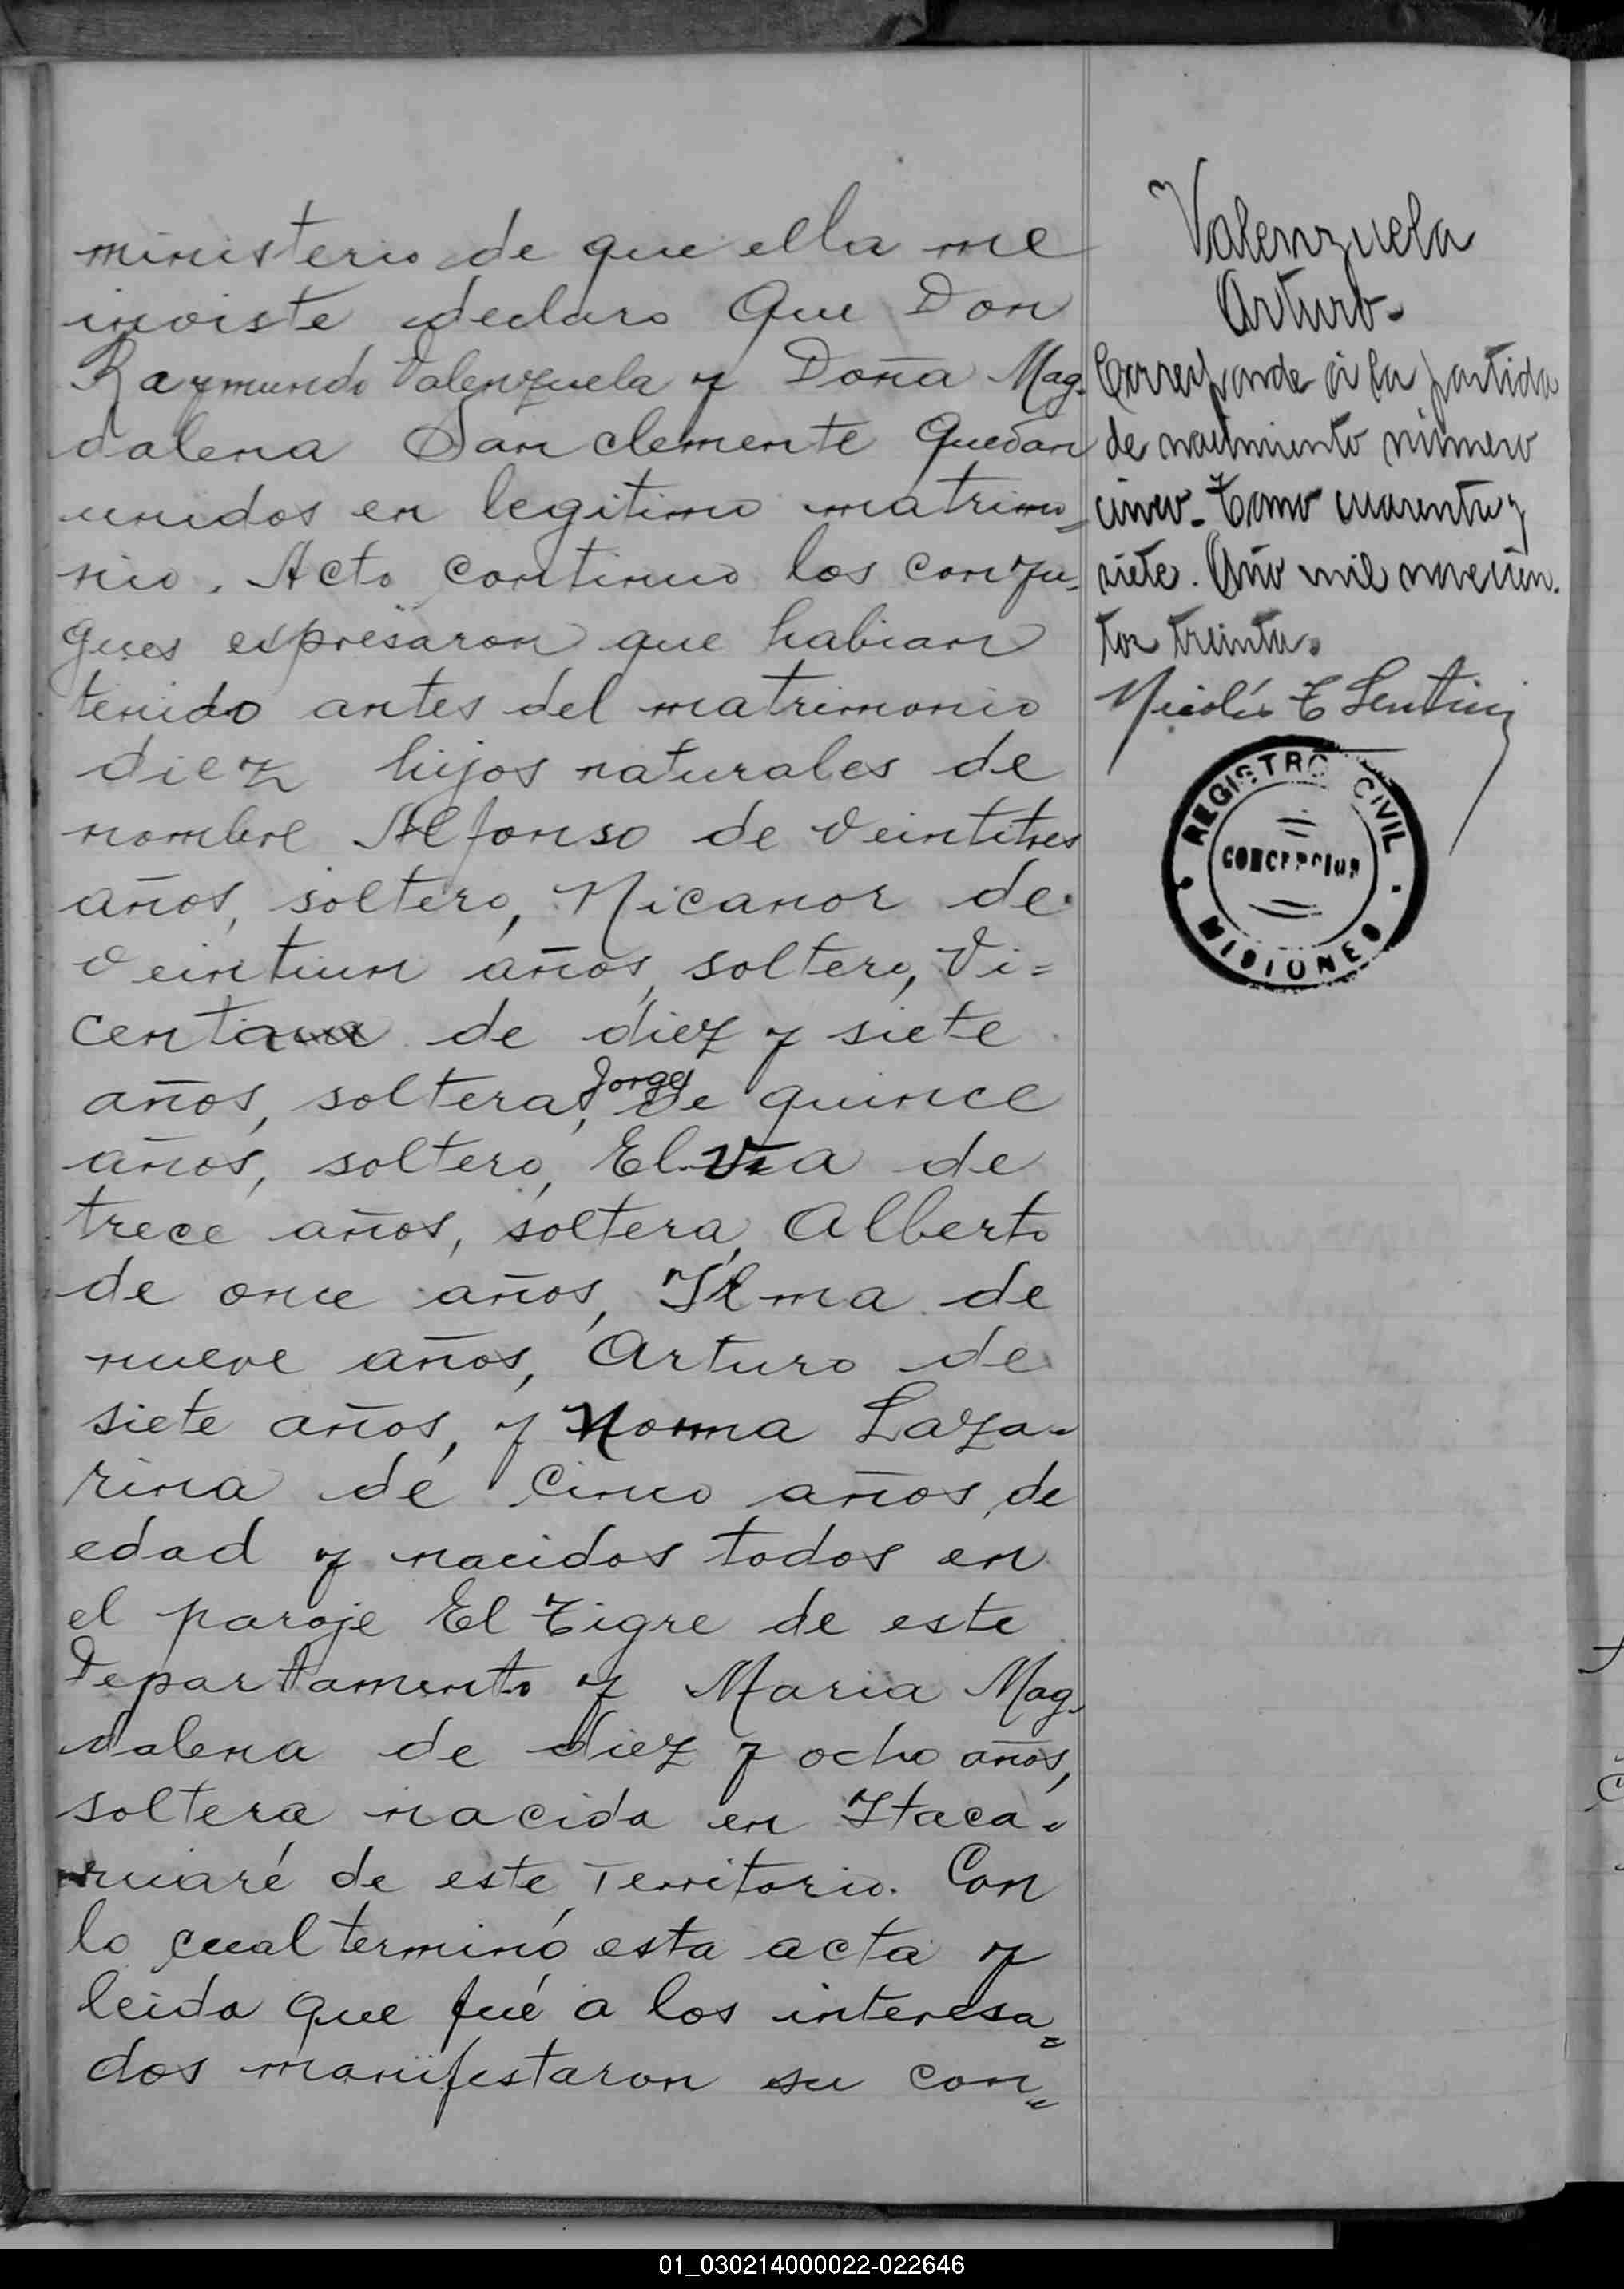 ministerio de que ella me
inviste declaro Que Don
Raymundo Valenzuela y Doña Mag-
dalena San clemente Quedan
unidos en legitimo matrimo=
nio. Acto continuo los conyu-
gues espresaron que habian
tenido antes del matrimonio
diez hijos naturales de
nombre Alfonso de veintitres
años, soltero, Nicanor de
veintiun años, soltero, Vi=
centa de diez y siete
años, soltera, Jorge de quince
años, soltero, Elva de
trece años, soltera, Alberto
de once años, Ilma de
nueve años, Arturo de
siete años, y Norma Laza-
rina de cinco años de
edad y nacidos todos en
el paraje El Tigre de este
Departamento y Maria Mag-
dalena de diez y ocho años,
soltera nacida en Itaca-
ruaré de este Territorio. Con
lo cual terminó esta acta y
leida que fué a los interesa=
dos manifestaron su con=
Valenzuela
Arturo-
Corresponde á la partida
de nacimiento número
cinco. Tomo cuarenta y
siete. Año mil novecien-
tos treinta.
REGISTRO CIVIL
CONCEPCION
MISIONES
01_030214000022-022646